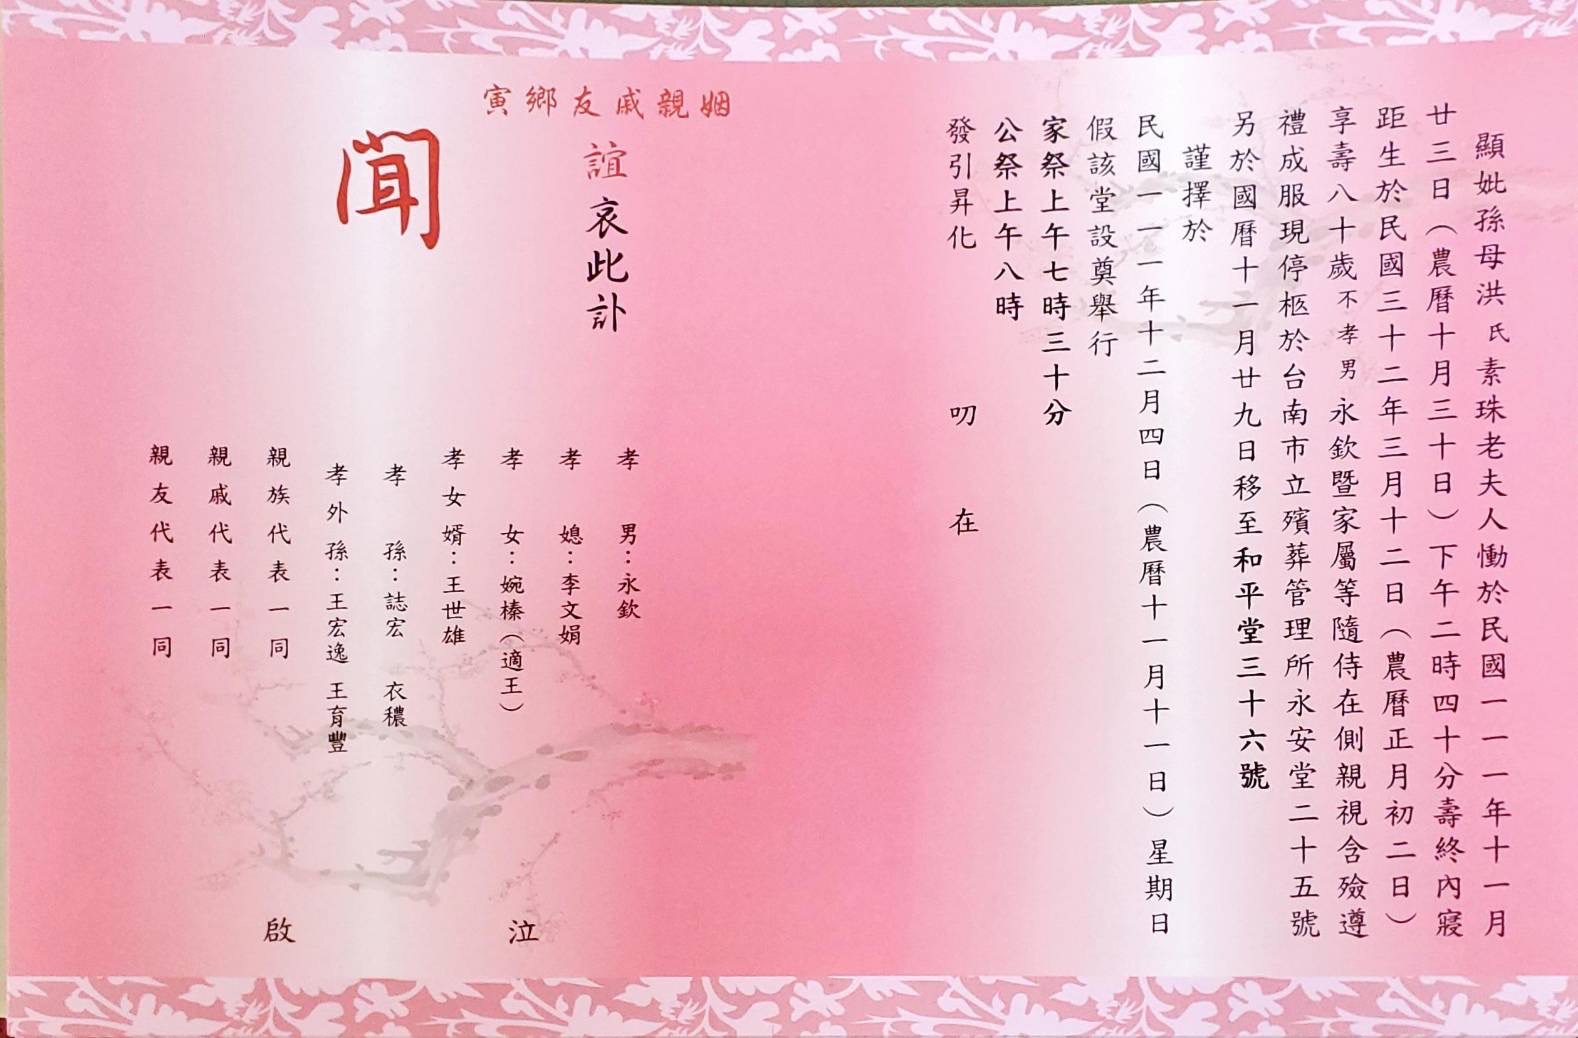 顯妣孫母洪氏素珠老夫人慟於民國一一一年十一月
廿三日（農曆十月三十日）下午二時四十分壽終內寢
距生於民國三十二年三月十二日（農曆正月初二日）
享壽八十歲不孝男永欽暨家屬等隨侍在側親視含殮遵
禮成服現停柩於台南市立殯葬管理所永安堂二十五號
另於國曆十一月廿九日移至和平堂三十六號
謹擇於
民國一一一年十二月四日（農曆十一月十一日）星期日
假該堂設奠舉行
家祭上午七時三十分
公祭上午八時
發引昇化 叨在
姻親戚友鄉寅
誼哀此訃
聞
孝男：永欽
孝媳：李文娟
孝女：婉榛（適王）
孝女婿：王世雄
孝孫：誌宏 衣穠
孝外孫：王宏逸 王育豐
親族代表一同
親戚代表一同
親友代表一同
泣
啟